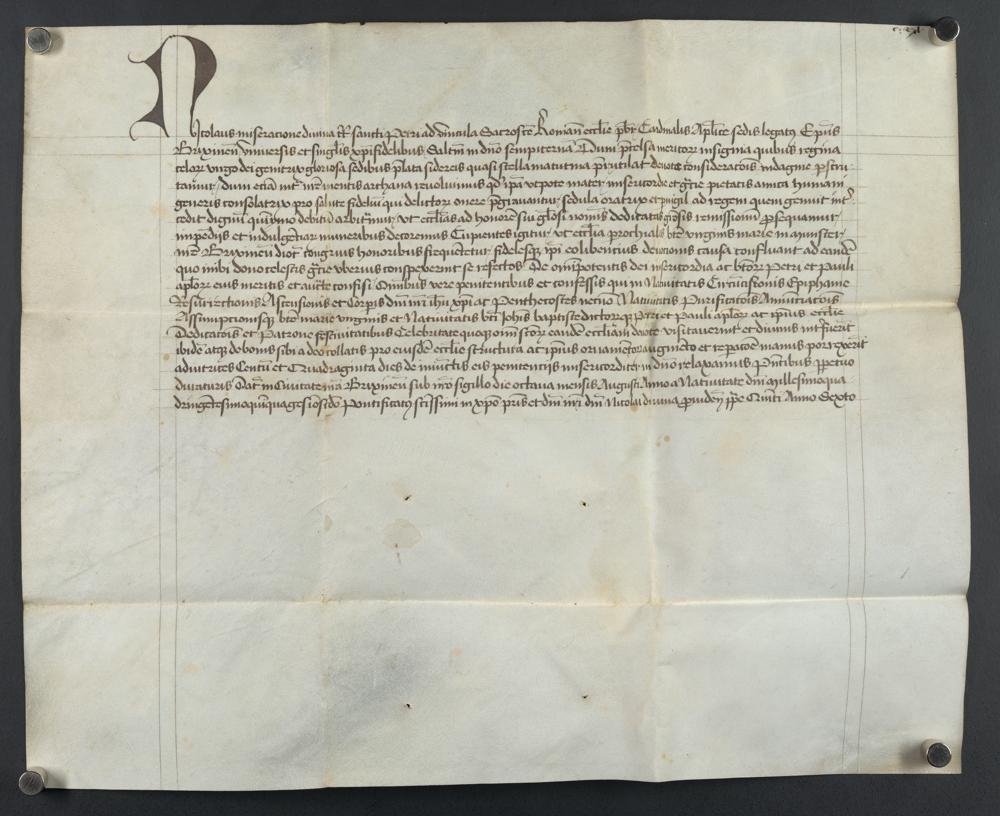 Nicolaus miseracione divina tt̄. sancti Petri ad vincula Sacroscē Romañ ecclīe p̄br Cardinalis Aplīce sedis legatꝰ Ep̄us
Brixineñ Universis et singlīs xp̄ifidelibus Salt̄m in dn̄o sempiternā Dum p̄celsa meritoꝝ insignia quibus regina
celoꝝ virgo dei genitrix gloriosa sedibus p̄lata sidereis quasi stella matutina p̄rutilat devote considerac̄ois indagine p̄scru-
tamur, Dum eciā int̄ nr̄e mentis archana revolvimus qd ip̄a utpote mater misericordie et gr̄cie pietatis amica humani
generis consolatrix pro salute fideliū qui delictoꝝ onere p̄gravantur, sedula oratrix et pvigil ad regem quem genuit int̄-
cedit dignū quīymo debitū arbit̄mur, ut ecclīas ad honorē sui glōsi nomīs dedicatas grōsis remissionū p̄sequamur
impendijs et indulgēciaꝝ muneribus decoremus Cupientes igitur, ut ecclīa parochialis btē virginis marie in
nr̄e Brixineñ dioc̄ congruis honoribus frequētetur, fidelesqꝫ ip̄i eo libencius devocionis causa confluant ad eandē
quo inibi dono celestis gr̄cie uberius conspexerint se refectos De omīpotentis dei misericordia ac btōꝝ Petri et Pauli
aplōꝝ eius meritis et auctē confisi Omnibus vere penitentibus et confessis qui in Nativitatis Circūcisionis Epiphanie
Resurrectionis Ascensionis et Corpis dn̄i nr̄i ihū xp̄i ac Penthecostes necnō Nativitatis Purificac̄ois Annūciac̄ois
Assumpcionisqꝫ btē marie virginis et Nativitatis btī Joh̄is baptiste dictoꝝqꝫ Petri et Pauli aplōꝝ ac ip̄ius ecclīe
Dedicac̄ois et Patrone festivitatibus Celebritate quoqꝫ om̄i sctōꝝ eandē ecclīam devote visitaverint et divinis int̄fuerīt
ibidē atqꝫ de bonis sibi a deo collatis pro eiusdē ecclīe structura ac ip̄ius ornamētoꝝ augmēto et repac̄oē manus porrexerīt
adiutrices Centū et Quadraginta dies de iniunctis eis penitencijs misericorditer in dn̄o relaxamus P̄ntibus p̄petuo
duraturis Dat̄ in Civitate nr̄a Brixineñ sub nr̄o sigillo die octava mensis Augusti Anno a Nativitate dn̄i Millesimoqua-
dringētesimoquīquagesimosc̄do Pontificatꝰ sctissimi in xp̄o pr̄is et dn̄i nr̄i dn̄i Nicolai divina p̄videñ pp̄e Quinti Anno Sexto